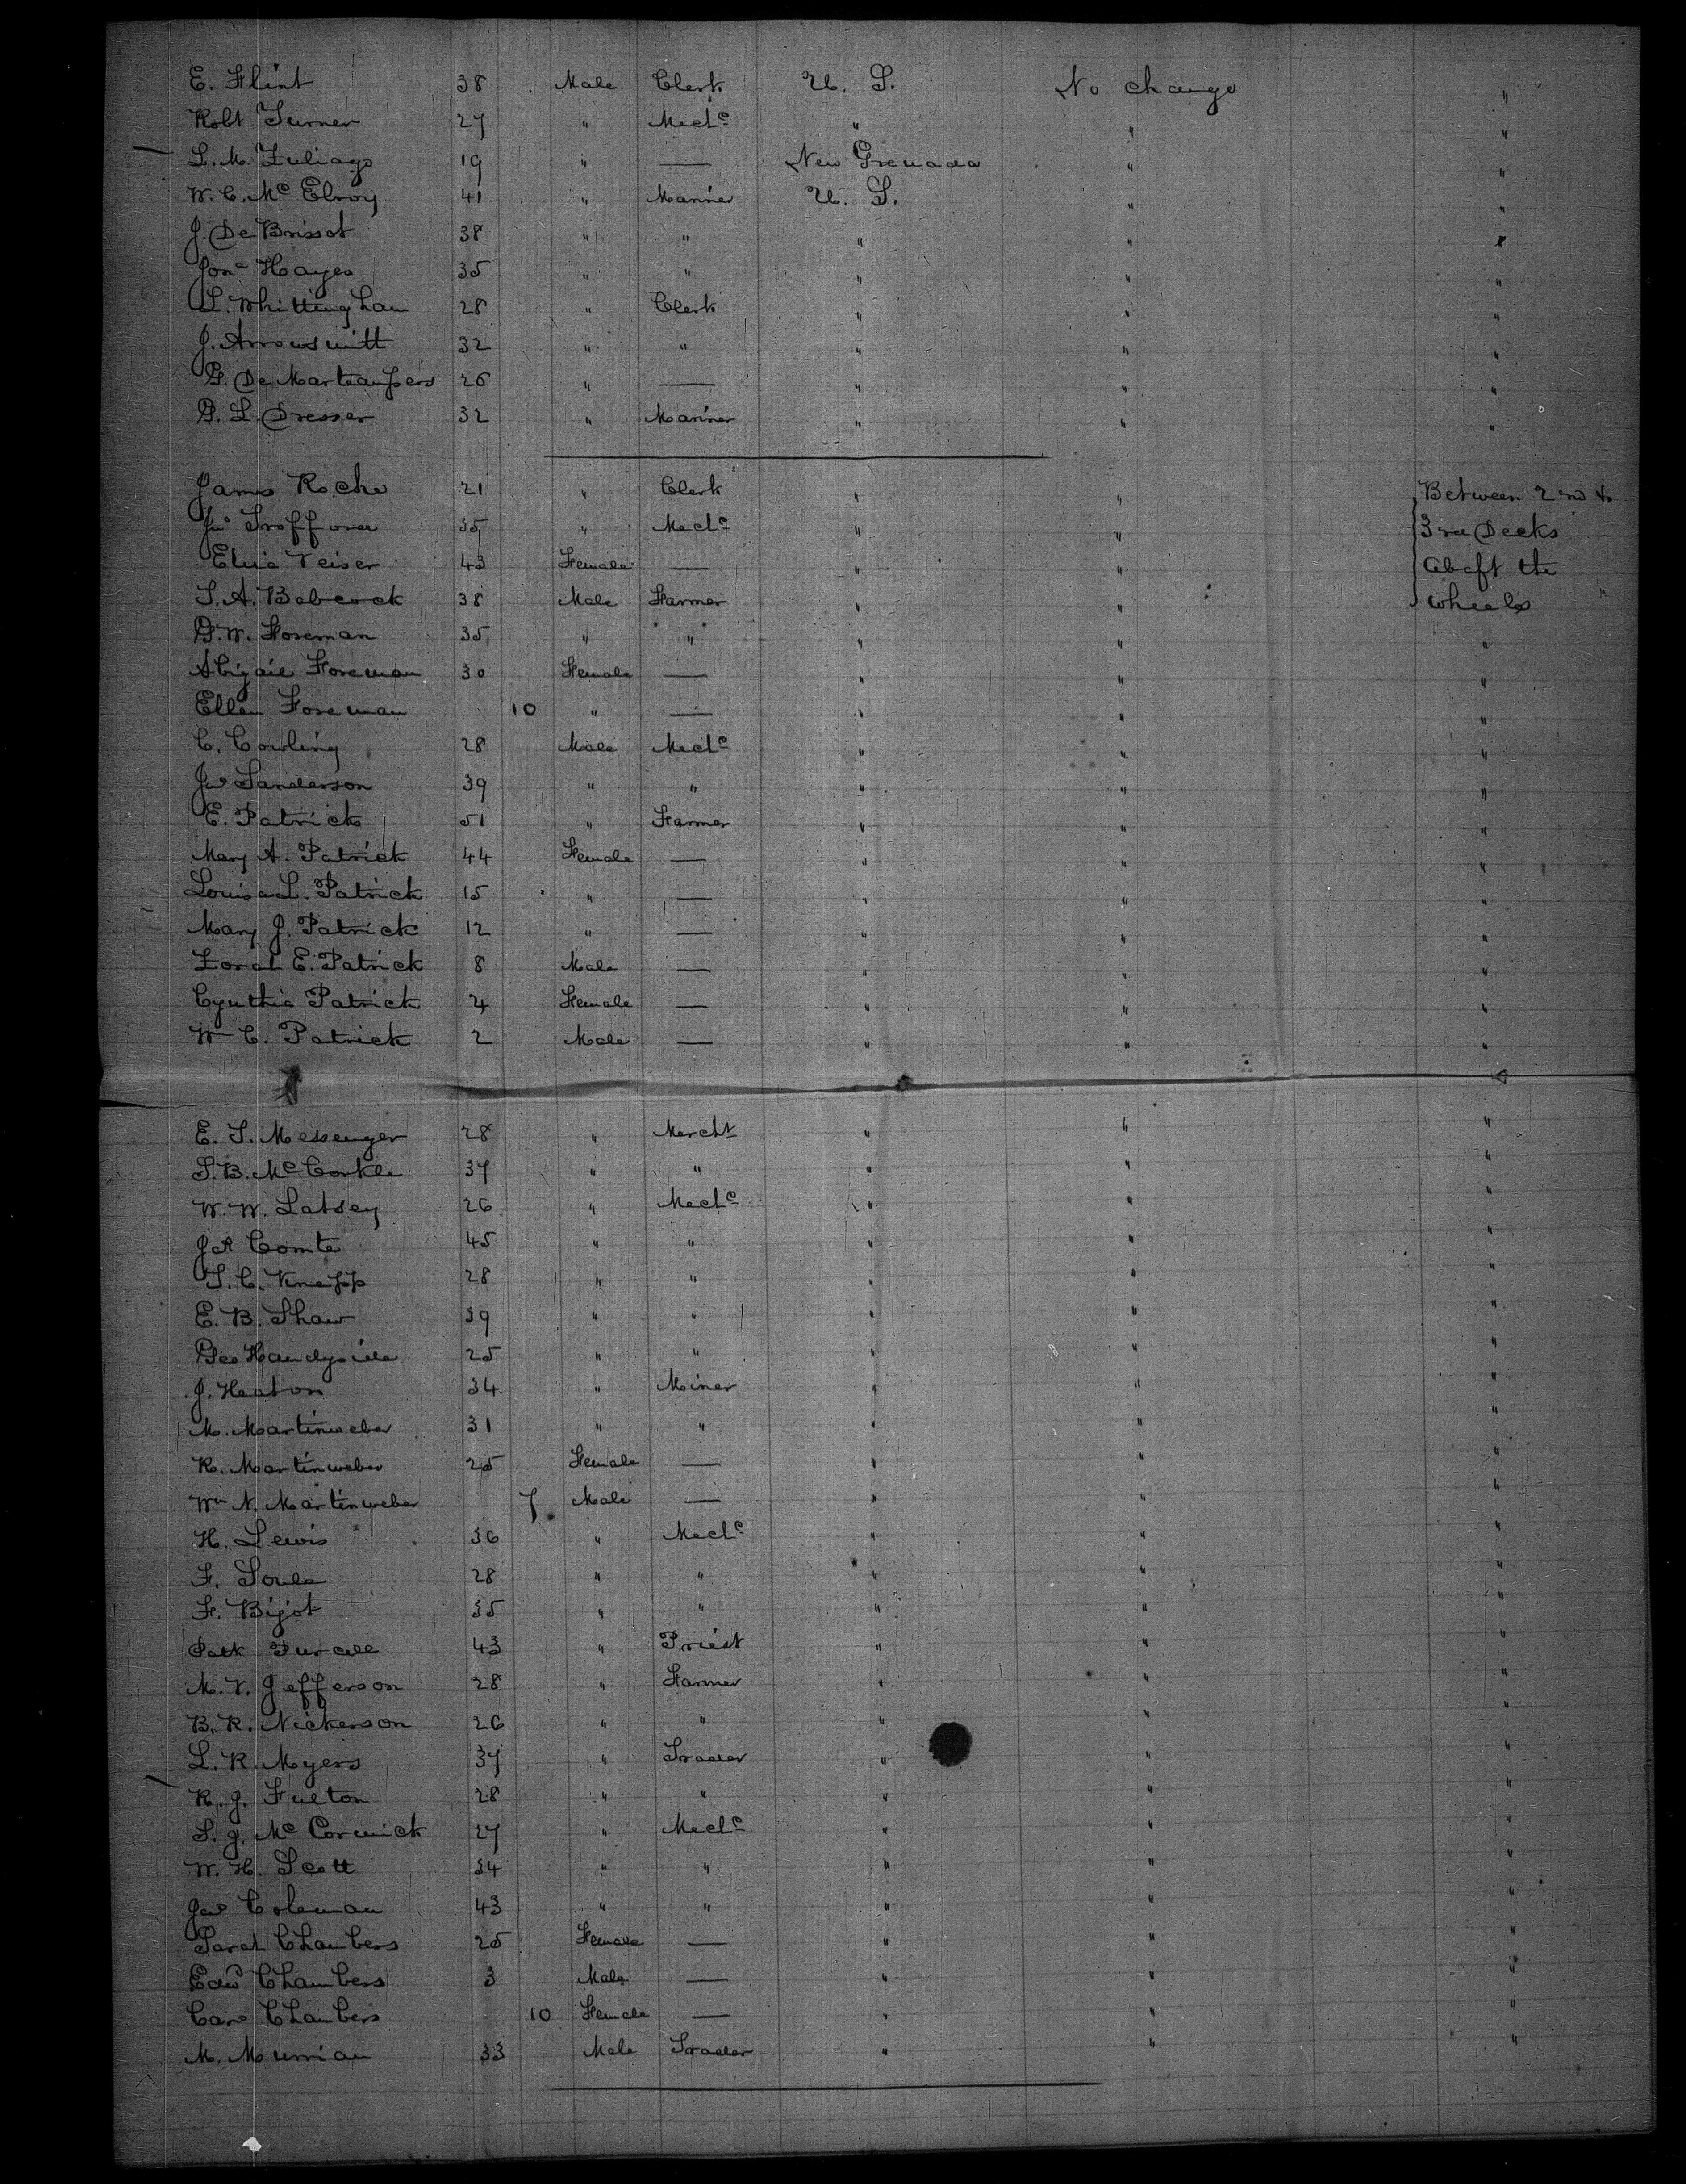 E. Flint 38 Male Clerk U. S. No change "
Robt Turner 27 " Mechc " " "
L. M. Zuliago 19 " — New Grenada " "
W. C. Mc Elroy 41 " Mariner U. S. " "
J. De Brissot 38 " " " " "
Jona Hayes 35 " " " " "
L. Whittingham 28 " Clerk " " "
J. Arrowsmitt 32 " " " " "
G. De 26 " — " " "
G. L. Dresser 32 " Mariner " " "
James Roche 21 " Clerk " " Between 2nd &
Jno Trafford 35 " Mechc " " 3rd Decks
Eliza Veiser 43 Female — " " abaft the
S. A. Babcock 38 Male Farmer " " wheels
G. W. Foreman 35 " " " " "
Abigail Foreman 30 Female — " " "
Ellen Foreman 10 " — " " "
C. Cowling 28 Male Mechc " " "
Jas Sanderson 39 " " " " "
E. Patrick 51 " Farmer " " "
Mary A. Patrick 44 Female — " " "
Louisa L. Patrick 15 " — " " "
Mary J. Patrick 12 " — " " "
E. Patrick 8 Male — " " "
Cynthia Patrick 4 Female — " " "
Wm C. Patrick 2 Male — " " "
E. S. Messenger 28 " Marcht " " "
S. B. Mc Corkle 37 " " " " "
W. W. Latsey 26 " Mechc " " "
Comte 45 " " " " "
S. C. Knapp 28 " " " " "
E. B. Shaw 39 " " " " "
Geo Handyside 25 " " " " "
J. Heaton 34 " Miner " " "
M. Martinweber 31 " " " " "
R. Martinweber 25 Female — " " "
Wm N. Martinweber 7 Male — " " "
H. Lewis 36 " Mechc " " "
F. Soule 28 " " " " "
F. Bijot 35 " " " " "
Patk Purcell 43 " Priest " " "
M. V. Jefferson 28 " Farmer " " "
B. R. Nickerson 26 " " " " "
L. R. Myers 37 " Trader " " "
R. J. Fulton 28 " " " " "
S. J. Mc Cormick 27 " Mechc " " "
W. H. Scott 34 " " " " "
Jas Coleman 43 " " " " "
Sarah Chambers 25 Female — " " "
Edwd Chambers 3 Male — " " "
Caro Chambers 10 Female — " " "
M. Murrian 33 Male Trader " " "